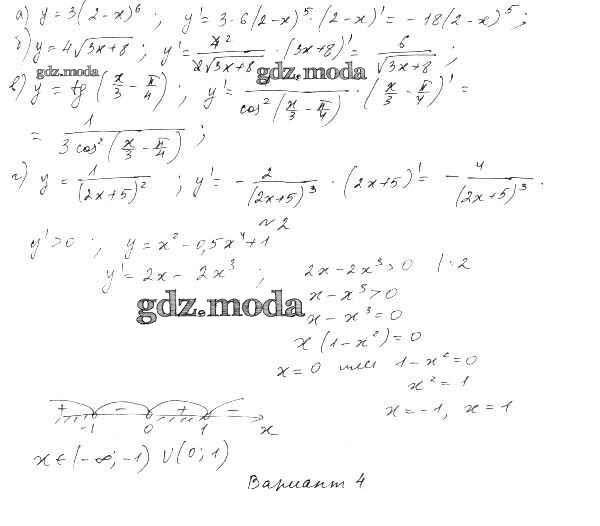 а) y = 3(2-x)⁶ ; y' = 3·6(2-x)⁵·(2-x)' = -18(2-x)⁵ ;
б) y = 4√(3x+8) ; y' = 4²/(2√(3x+8)) · (3x+8)' = 6/√(3x+8) ;
gdz.moda
gdz.moda
в) y = tg(x/3 - π/4) ; y' = 1/cos²(x/3 - π/4) · (x/3 - π/4)' =
= 1/(3cos²(x/3 - π/4)) ;
г) y = 1/(2x+5)² ; y' = - 2/(2x+5)³ · (2x+5)' = - 4/(2x+5)³ .
№2
y' > 0 ; y = x² - 0,5x⁴ + 1
y' = 2x - 2x³ ; 2x - 2x³ > 0 | : 2
gdz.moda
x - x³ > 0
x - x³ = 0
x(1-x²) = 0
x = 0 или 1-x² = 0
x² = 1
x = -1, x = 1
+ - + -
-1 0 1 x
x ∈ (-∞; -1) ∪ (0; 1)
Вариант 4